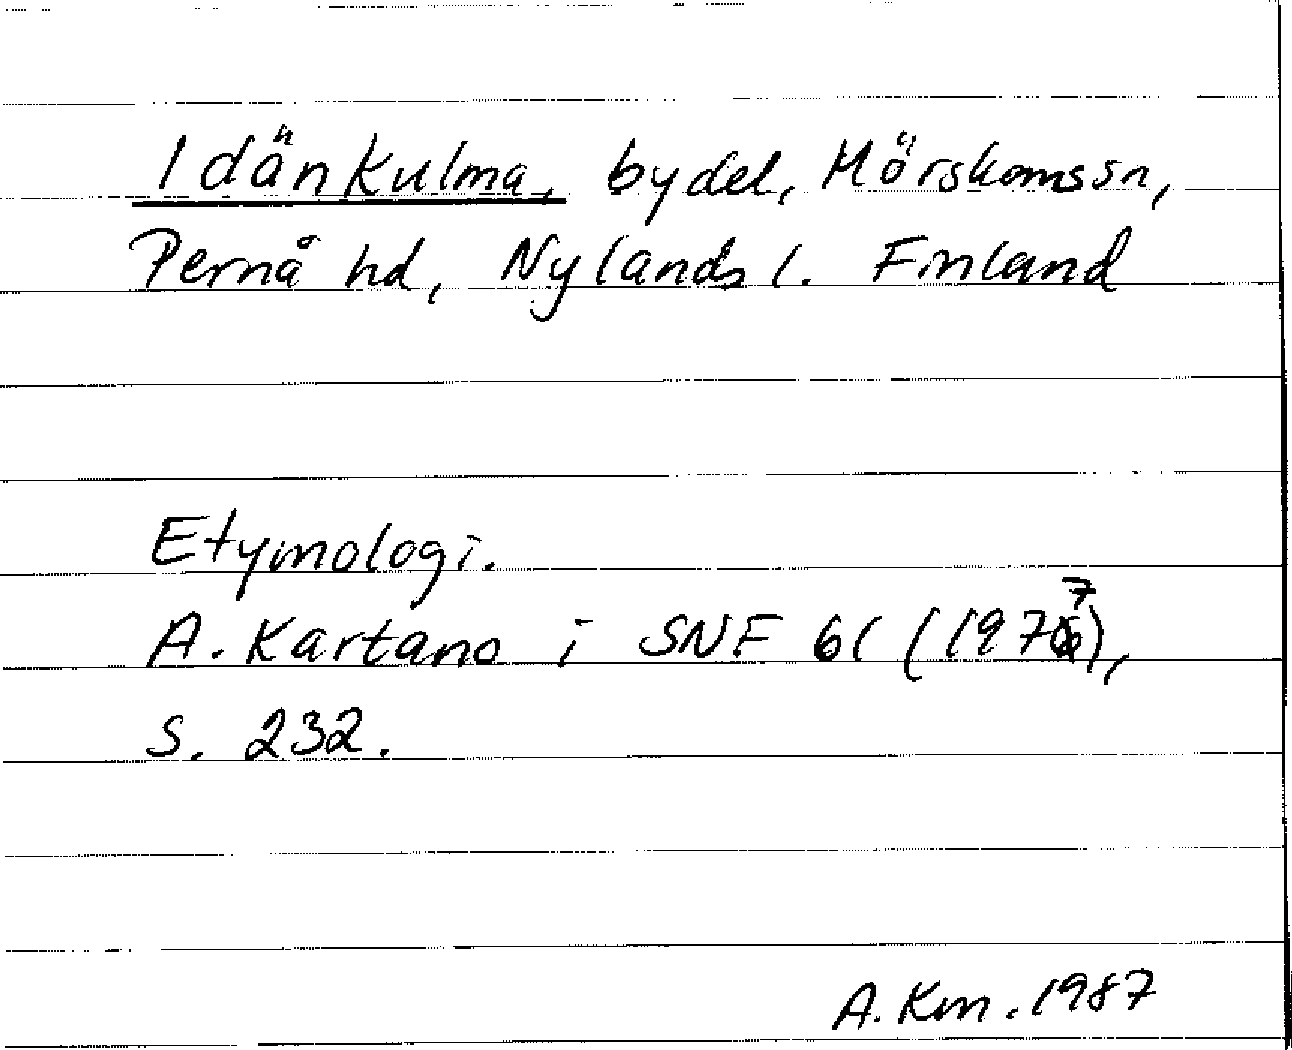 Idänkulma, bydel, Mörskoms sn,
Pernå hd, Nylands l. Finland
Etymologi.
A. Kartano i SNF 61 (1977),
s. 232.
A. Km. 1987